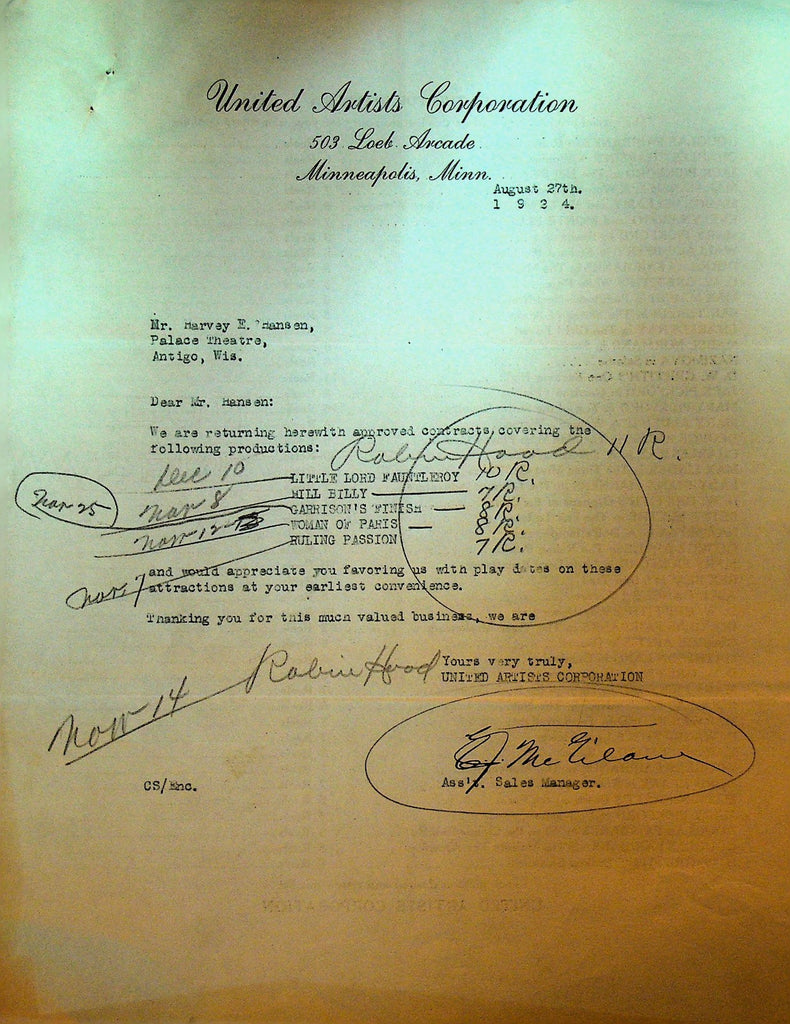 United Artists Corporation
503 Loeb Arcade
Minneapolis, Minn.
August 27th.
1 9 2 4.
Mr. Harvey E. Hansen,
Palace Theatre,
Antigo, Wis.
Dear Mr. Hansen:
We are returning herewith approved contracts covering the
following productions: Robin Hood 11 R.
Dec 10 LITTLE LORD FAUNTLEROY 10 R.
Nov 25
Nov 8 HILL BILLY 7 R.
GARRISON'S FINISH 8 R.
Nov 12-13 WOMAN OF PARIS 8 R.
RULING PASSION 7 R.
and would appreciate you favoring us with play dates on these
Nov 7 attractions at your earliest convenience.
Thanking you for this much valued business, we are
Robin Hood Yours very truly,
UNITED ARTISTS CORPORATION
Nov 14
CS/Enc.
Ass't. Sales Manager.
UNITED ARTISTS CORPORATION